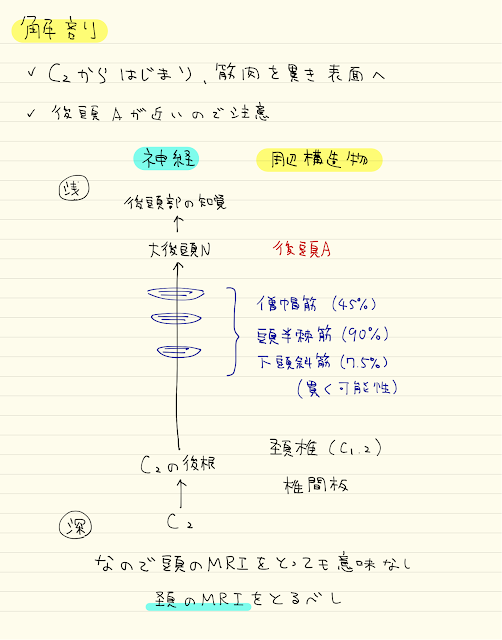 解剖
✓ C2からはじまり、筋肉を貫き表面へ
✓ 後頭Aが近いので注意
神経 周辺構造物
浅
後頭部の知覚
↑
大後頭N 後頭A
↑
僧帽筋 (45%)
頭半棘筋 (90%)
下頭斜筋 (7.5%)
(貫く可能性)
C2の後根 頚椎 (C1.2)
↑ 椎間板
深 C2
なので頭のMRIをとっても意味なし
頚のMRIをとるべし